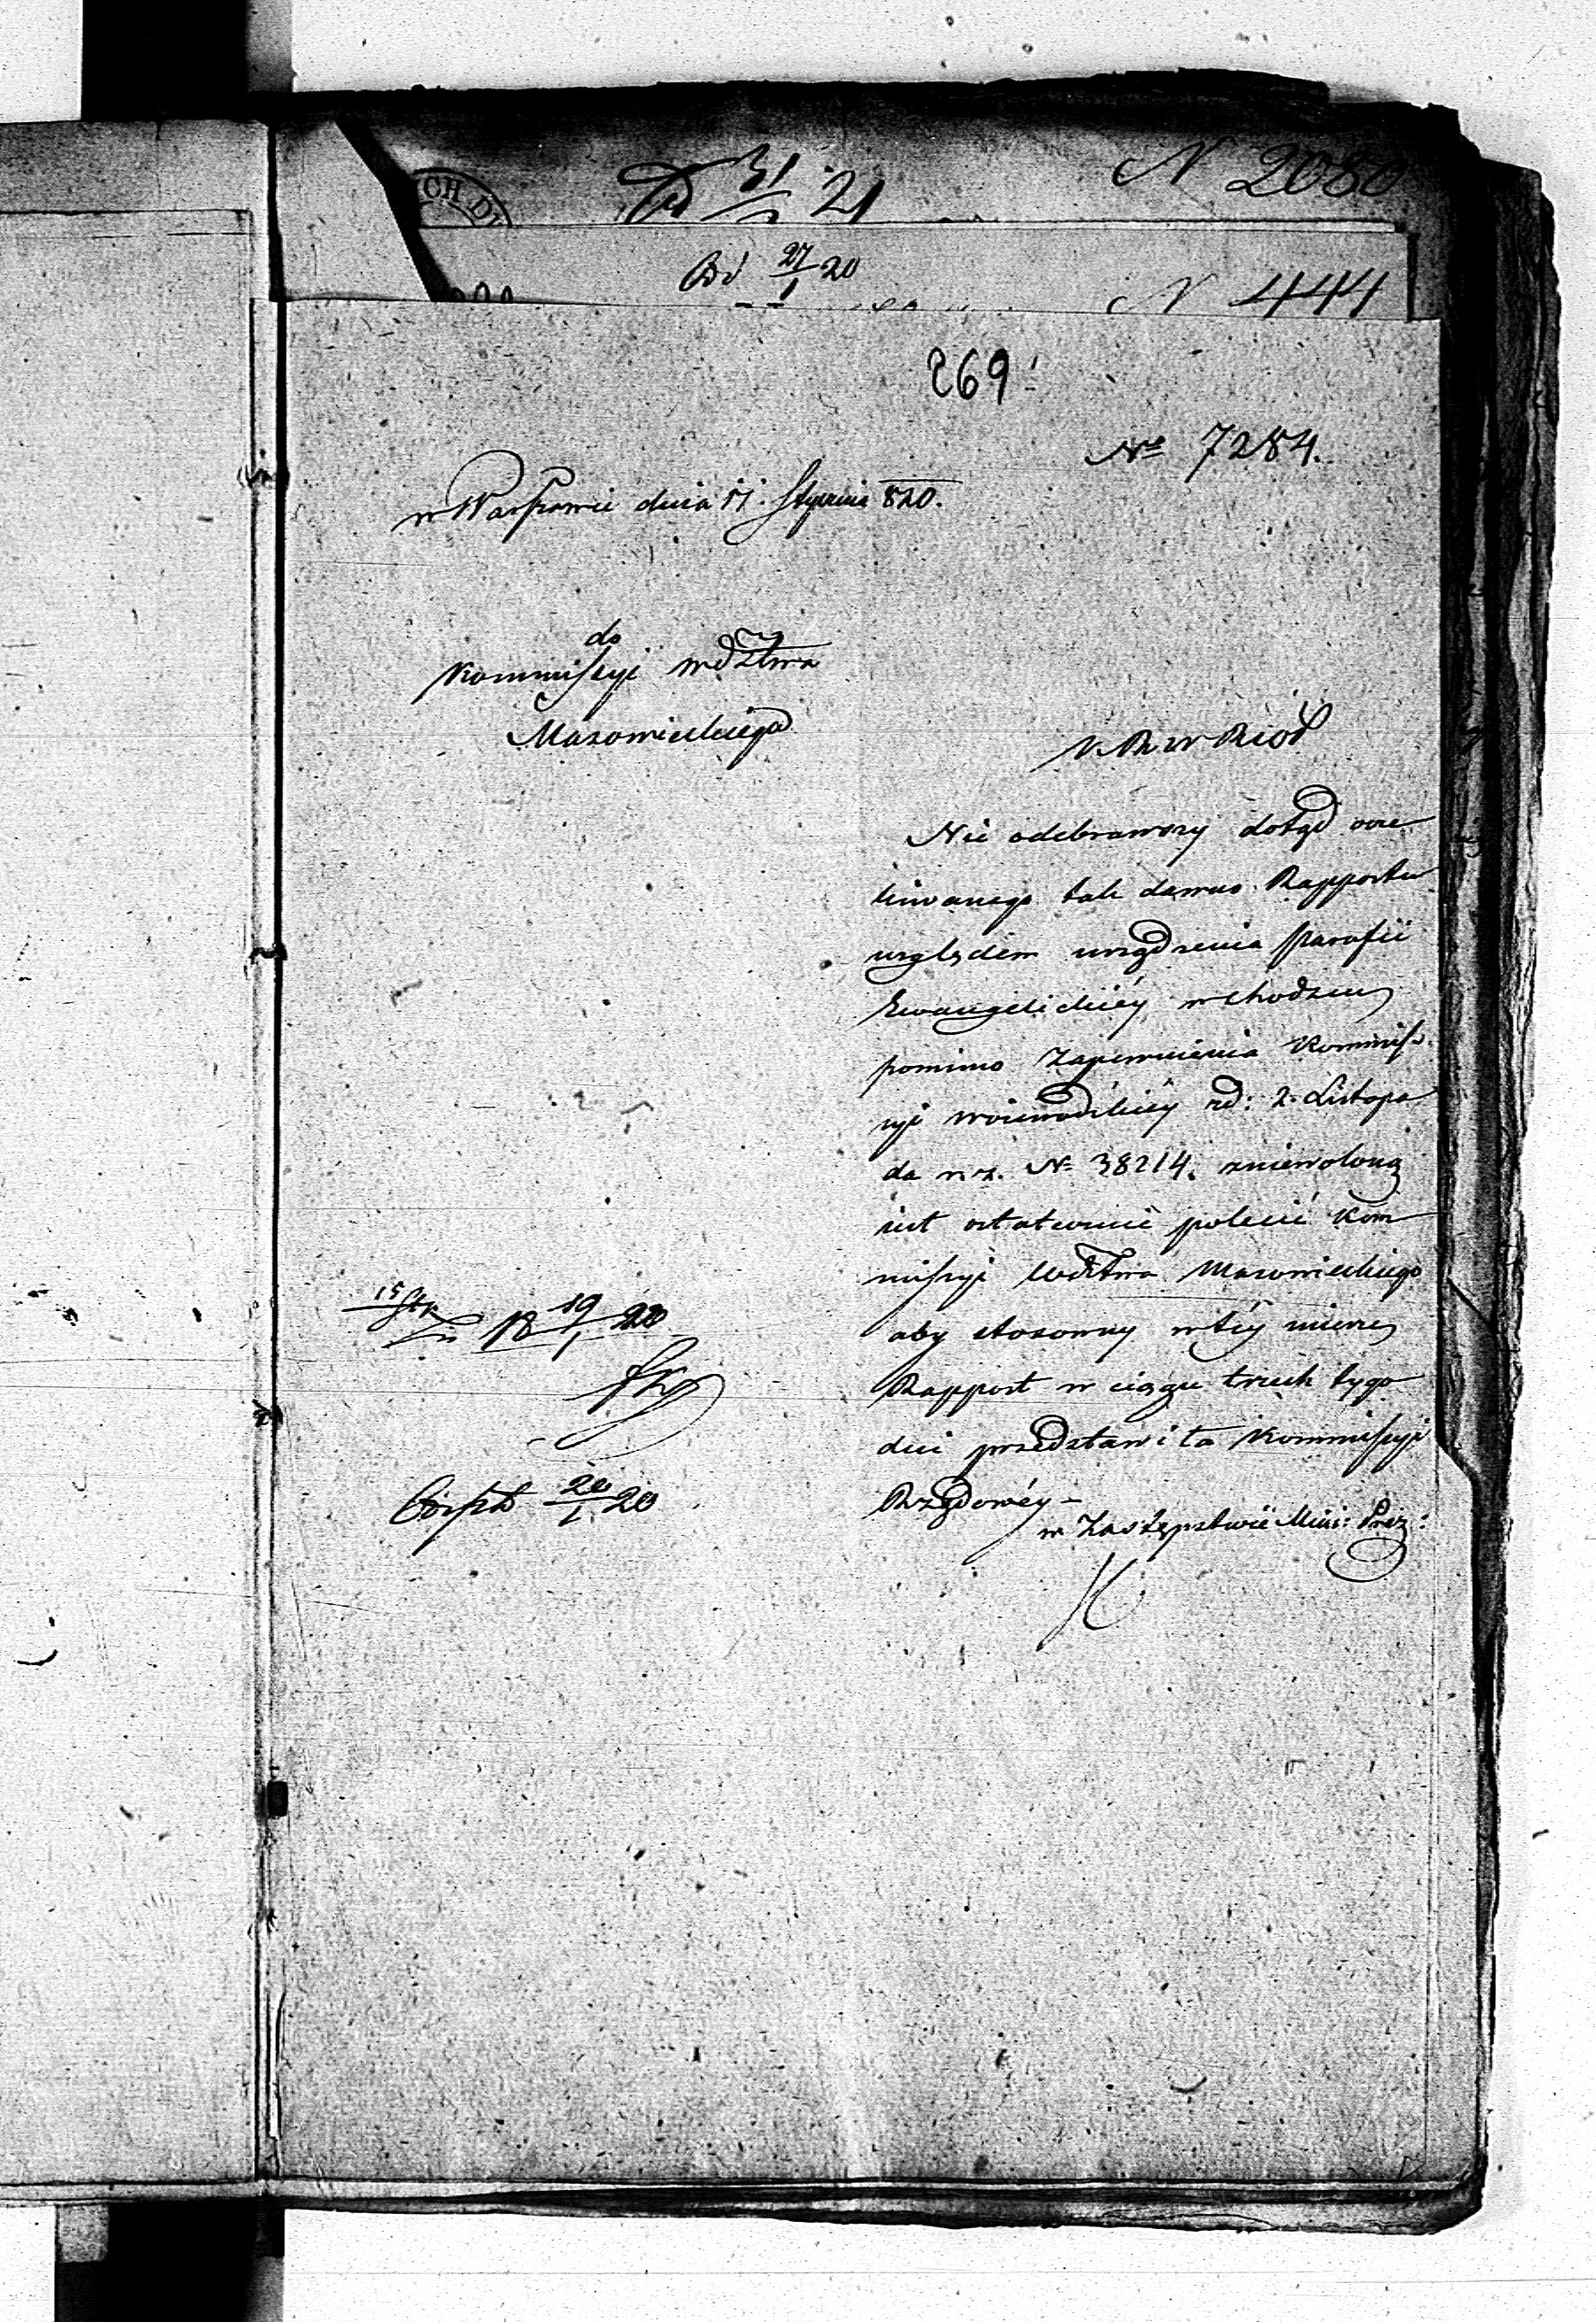 CH DU
31/21
N 2080
Od 27/1 20
N 444
269
No 7284.
w Warszawie dnia 17. Stycznia 820.
do
Kommissyi Wdztwa
Mazowieckiego
K. R. W. R. i O. P.
Nie odebrawszy dotąd ocze
kiwanego tak dawno Rapportu
względem urządzenia parafii
Ewangelickiéy w Chodczu
pomimo Zapewnienia Kommis-
syi Woiewodzkiéy zd: 2. Listopa
da r. z. No 38214. zniewoloną
iest ostatecznie polecić Kom
missyi Wdztwa Mazowieckiego
aby stosowny w téy mierze
Rapport w ciągu trzech tygo
dni przedstawiła Kommissyi
Rządowéy –
w Zastępstwie Min: Prez:
15 Stp
18 19/1 20
20/1 20